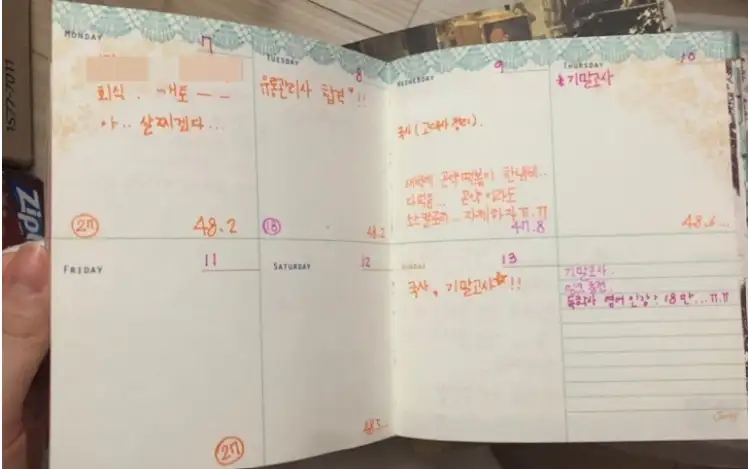 MONDAY
7
회식.
아.. 살찌겠다...
27
48.2
TUESDAY
8
유통관리사 합격!!
18
48.2
WEDNESDAY
9
국사
새벽에 곤약떡볶이 한냄비..
다먹음... 곤약이라도
소스칼로리... 자제하자 ㅠ.ㅠ
47.8
THURSDAY
10
기말고사
48.6...
FRIDAY
11
27
SATURDAY
12
48.5...
SUNDAY
13
국사, 기말고사☆!!
기말고사.
독학사 영어 인강: 18만...ㅠ.ㅠ
1577-7011
Zip